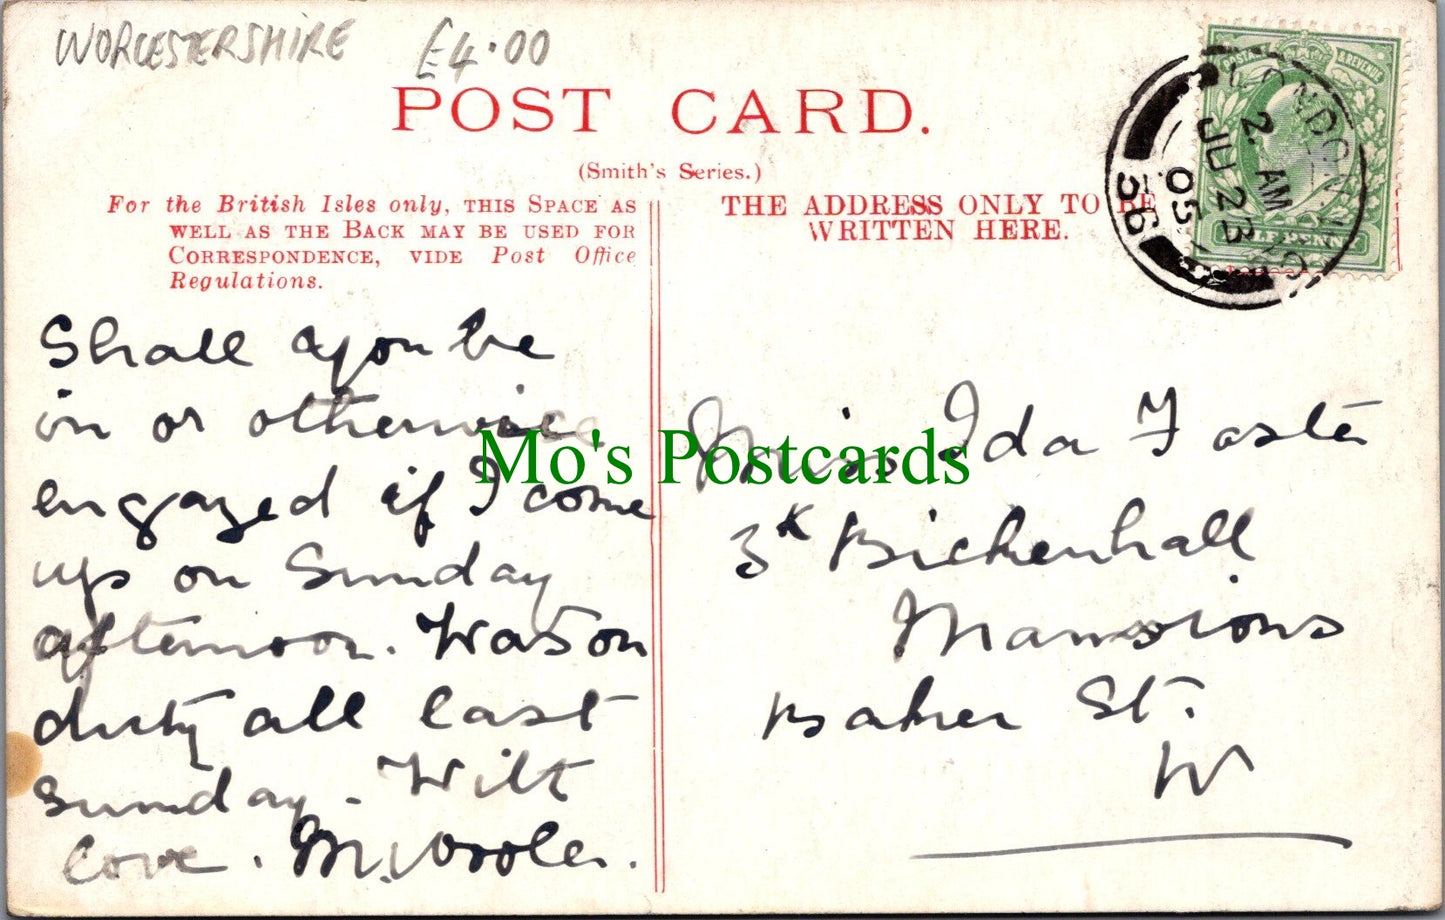 WORCESTERSHIRE £4.00
POST CARD.
(Smith's Series.)
For the British Isles only, THIS SPACE AS
WELL AS THE BACK MAY BE USED FOR
CORRESPONDENCE, VIDE Post Office
Regulations.
THE ADDRESS ONLY TO BE
WRITTEN HERE.
POSTAGE & REVENUE
LONDON
2 AM
JU 23
05
36
HALFPENNY
Shall you be
in or otherwise
engaged if I come
up on Sunday
afternoon. Was on
duty all last
Sunday. With
love.
Mo's Postcards
Miss Ida Foster
3K Bickenhall
Mansions
Baker St.
W